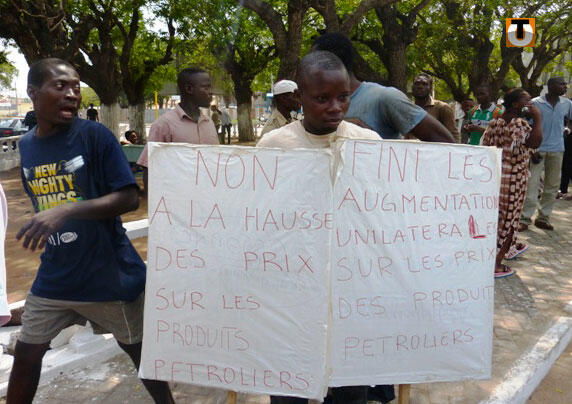 NEW
MIGHTY
KINGS
NON
A LA HAUSSE
DES PRIX
SUR LES
PRODUITS
PETROLIERS
FINI LES
AUGMENTATION
UNILATERALES
SUR LES PRIX
DES PRODUIT
PETROLIERS
T